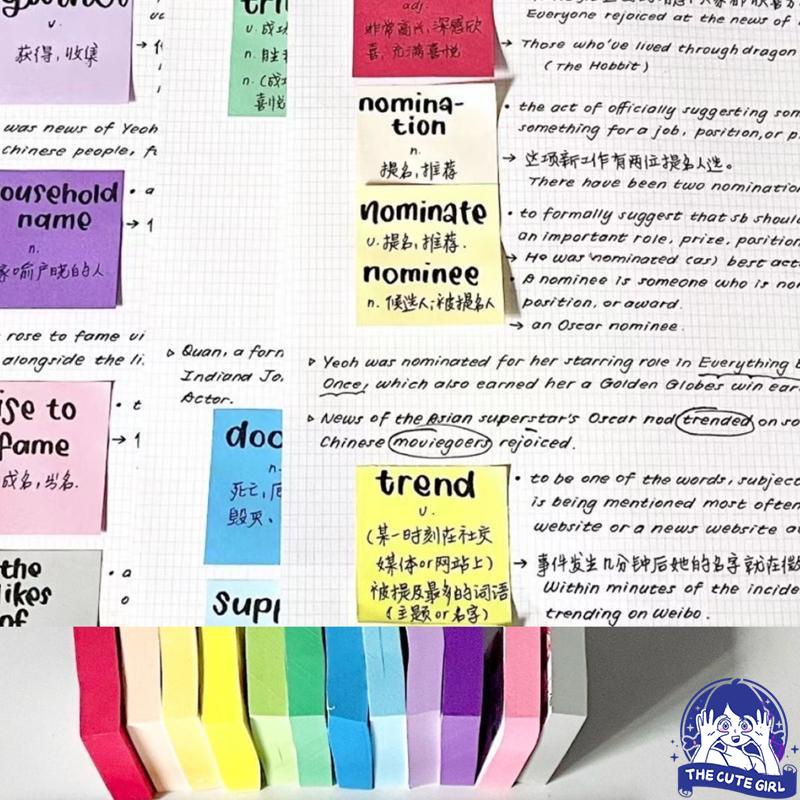 v.
获得，收集
was news of Yeoh
Chinese people, f
ousehold
name
n.
家喻户晓的人
• a
→ 1
rose to fame vi
alongside the li.
ise to
fame
成名，出名.
• t
→ 1
the
likes
of
• a
o
tri
v.
n.
n.
喜悦
▷ Quan, a forn
Indiana Jo.
Actor.
doo
n.
死亡，厄
毁灭、
supp
adj.
非常高兴，深感欣
喜，充满喜悦
Everyone rejoiced at the news of
→ Those who've lived through dragon
(The Hobbit)
nomina-
tion
n.
提名，推荐
• the act of officially suggesting som
something for a job, position, or p
→ 这项新工作有两位提名人选。
There have been two nomination
nominate
v. 提名，推荐.
nominee
n. 候选人；被提名人
• to formally suggest that sb should
an important role, prize, position
→ He was nominated (as) best act
• A nominee is someone who is nom
position, or award.
→ an Oscar nominee.
▷ Yeoh was nominated for her starring role in Everything E
Once, which also earned her a Golden Globes win ear
▷ News of the Asian superstar's Oscar nod trended on so
Chinese moviegoers rejoiced.
trend
v.
(某一时刻在社交
媒体or网站上)
被提及最多的词语
(主题or名字)
• to be one of the words, subject
is being mentioned most often
website or a news website a
→ 事件发生几分钟后她的名字就在微
Within minutes of the incide
trending on Weibo.
THE CUTE GIRL